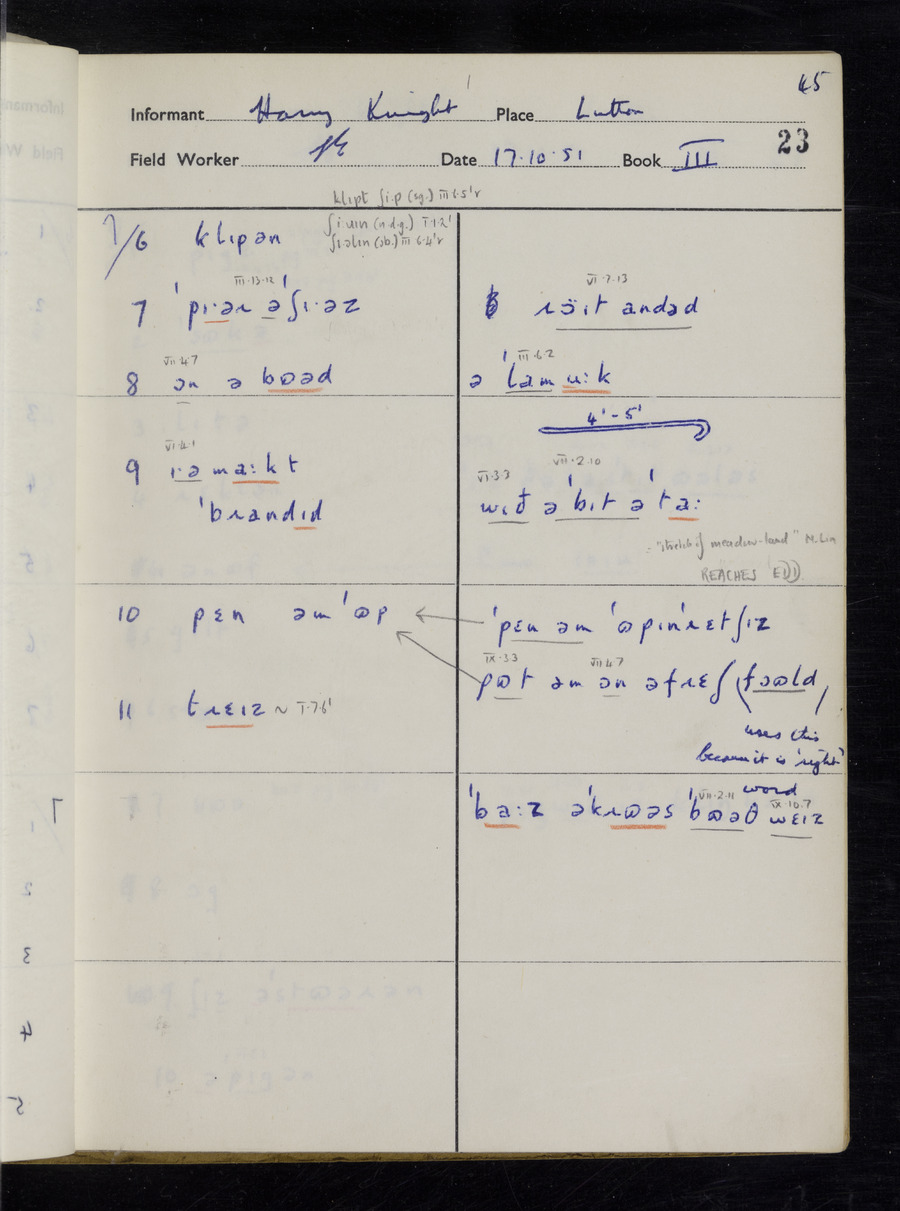 45
Informant Harry Knight Place Lutton
23
Field Worker Date 17.10.51 Book III
klɪpt ʃi·p (sg.) III·6·5'r
7/6 klɪpən
ʃi:ɪn (ndg.) I·1·2'
ʃɪəlɪn (sb.) III 6·4'r
III·13·12
7 ˈpɪ·əɹ əˈʃɪ·əz
VI·7·13
ɹɔ̈ɪt andəd
VII·4·7
8 ən ə bɷəd
III·6·2
ə ˈlam u:k
4' - 5'
VI·4·1
9 ɪ·ə ma:kt
ˈbɹandɪd
VI·3·3 VII·2·10
wɪð ə ˈbɪt ə ˈta:
"stretch of meadow-land" N.Lin
REACHES EDD
10 pɛn əmˈɷp
ˈpɛn əm ˈɷpɪnˈɹɛtʃɪz
IX·3·3 VII·4·7
pɷt əm ən əfɹɛʃ (fɔɷld)
uses this
because it is 'right'
word
11 tɹɛɪz ~ I·7·6'
VII·2·11 IX·10·7
ˈba:z əˈkɹɷəs ˈbɷəθ wɛɪz
7
1
2
3
4
5